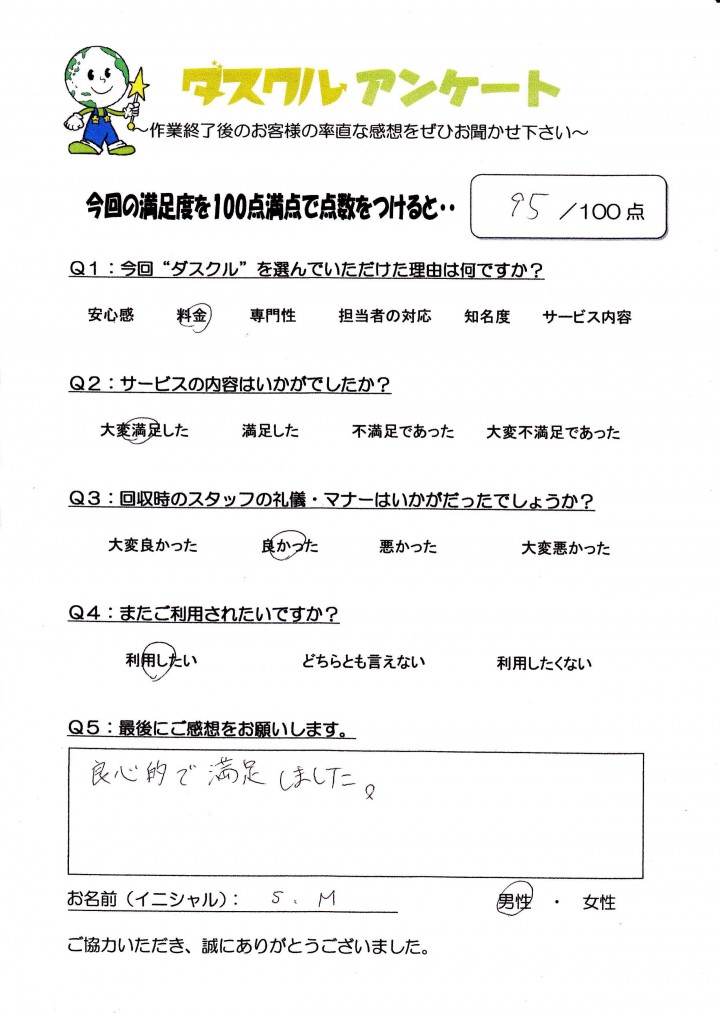 ダスクル アンケート
～作業終了後のお客様の率直な感想をぜひお聞かせ下さい～
今回の満足度を100点満点で点数をつけると‥ 95 /100点
Q1：今回“ダスクル”を選んでいただけた理由は何ですか？
安心感 料金 専門性 担当者の対応 知名度 サービス内容
Q2：サービスの内容はいかがでしたか？
大変満足した 満足した 不満足であった 大変不満足であった
Q3：回収時のスタッフの礼儀・マナーはいかがだったでしょうか？
大変良かった 良かった 悪かった 大変悪かった
Q4：またご利用されたいですか？
利用したい どちらとも言えない 利用したくない
Q5：最後にご感想をお願いします。
良心的で満足しました。
お名前（イニシャル）： S.M 男性 ・ 女性
ご協力いただき、誠にありがとうございました。